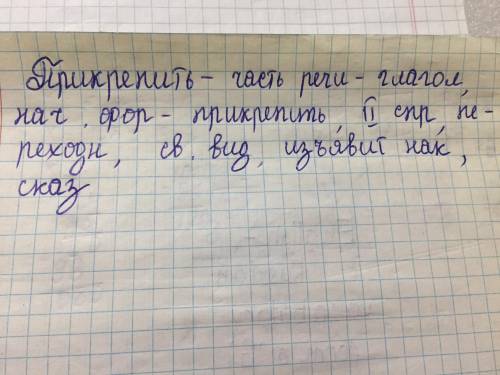 Прикрепить - часть речи - глагол,
нач. фор - прикрепить, II спр, пе-
реходн, св. вид, изъявит нак,
сказ